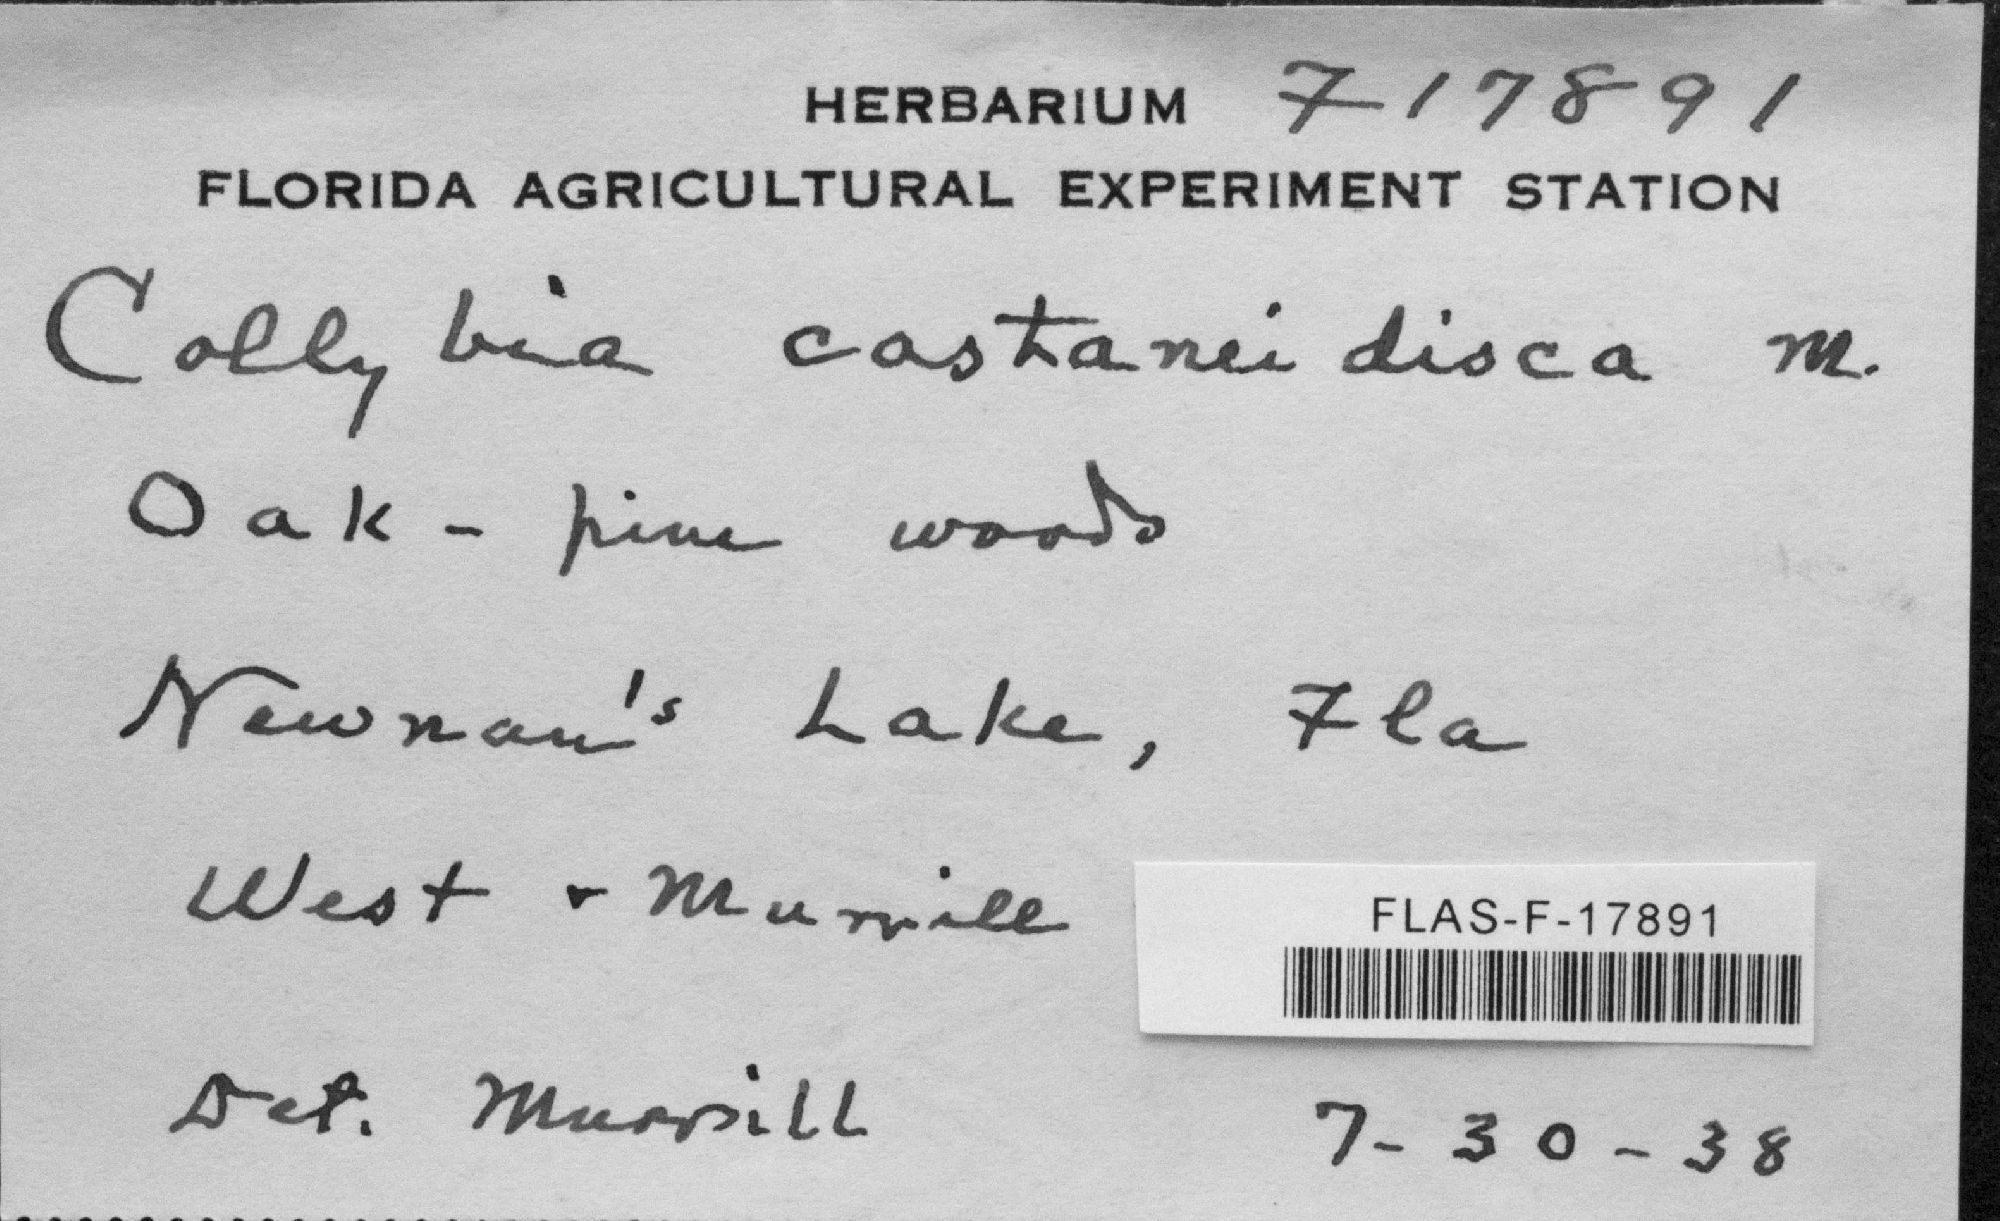 HERBARIUM F17891
FLORIDA AGRICULTURAL EXPERIMENT STATION
Collybia castaneidisca M.
Oak - pine woods
Newnan's Lake, Fla
West & Murrill
FLAS-F-17891
Det. Murrill 7-30-38